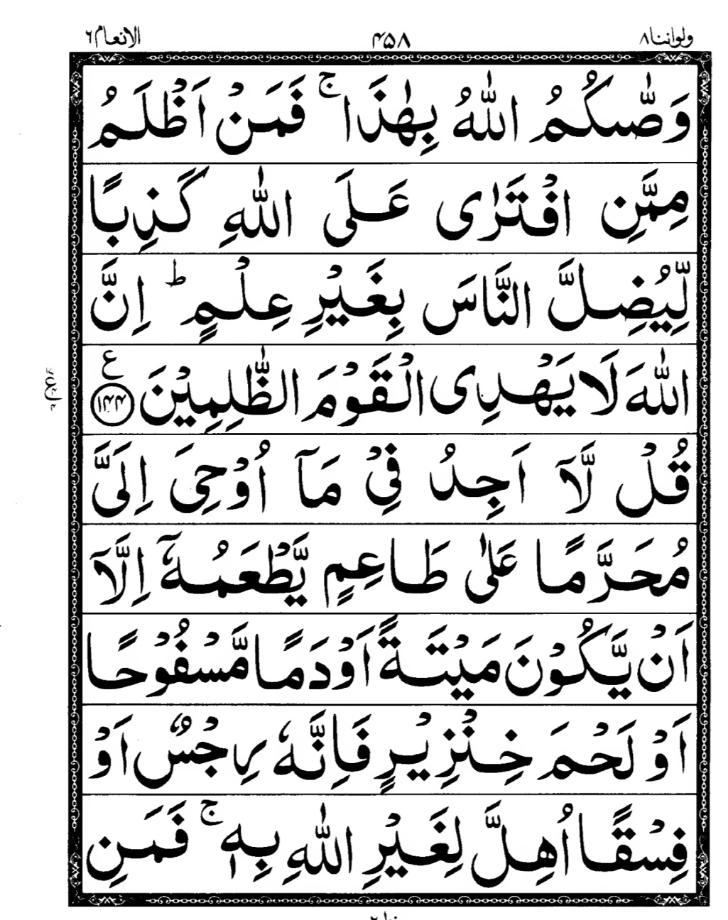 ولواننا ٨ ٤٥٨ الانعام ٦
وَصّٰىكُمُ اللّٰهُ بِهٰذَا ۚ فَمَنْ اَظْلَمُ
مِمَّنِ افْتَرٰى عَلَى اللّٰهِ كَذِبًا
لِّيُضِلَّ النَّاسَ بِغَيْرِ عِلْمٍ ؕ اِنَّ
اللّٰهَ لَا يَهْدِى الْقَوْمَ الظّٰلِمِيْنَ ع ﴿١٤٤﴾
قُلْ لَّاۤ اَجِدُ فِيْ مَاۤ اُوْحِيَ اِلَيَّ
مُحَرَّمًا عَلٰى طَاعِمٍ يَّطْعَمُهٗۤ اِلَّاۤ
اَنْ يَّكُوْنَ مَيْتَةً اَوْ دَمًا مَّسْفُوْحًا
اَوْ لَحْمَ خِنْزِيْرٍ فَاِنَّهٗ رِجْسٌ اَوْ
فِسْقًا اُهِلَّ لِغَيْرِ اللّٰهِ بِهٖ ۚ فَمَنِ